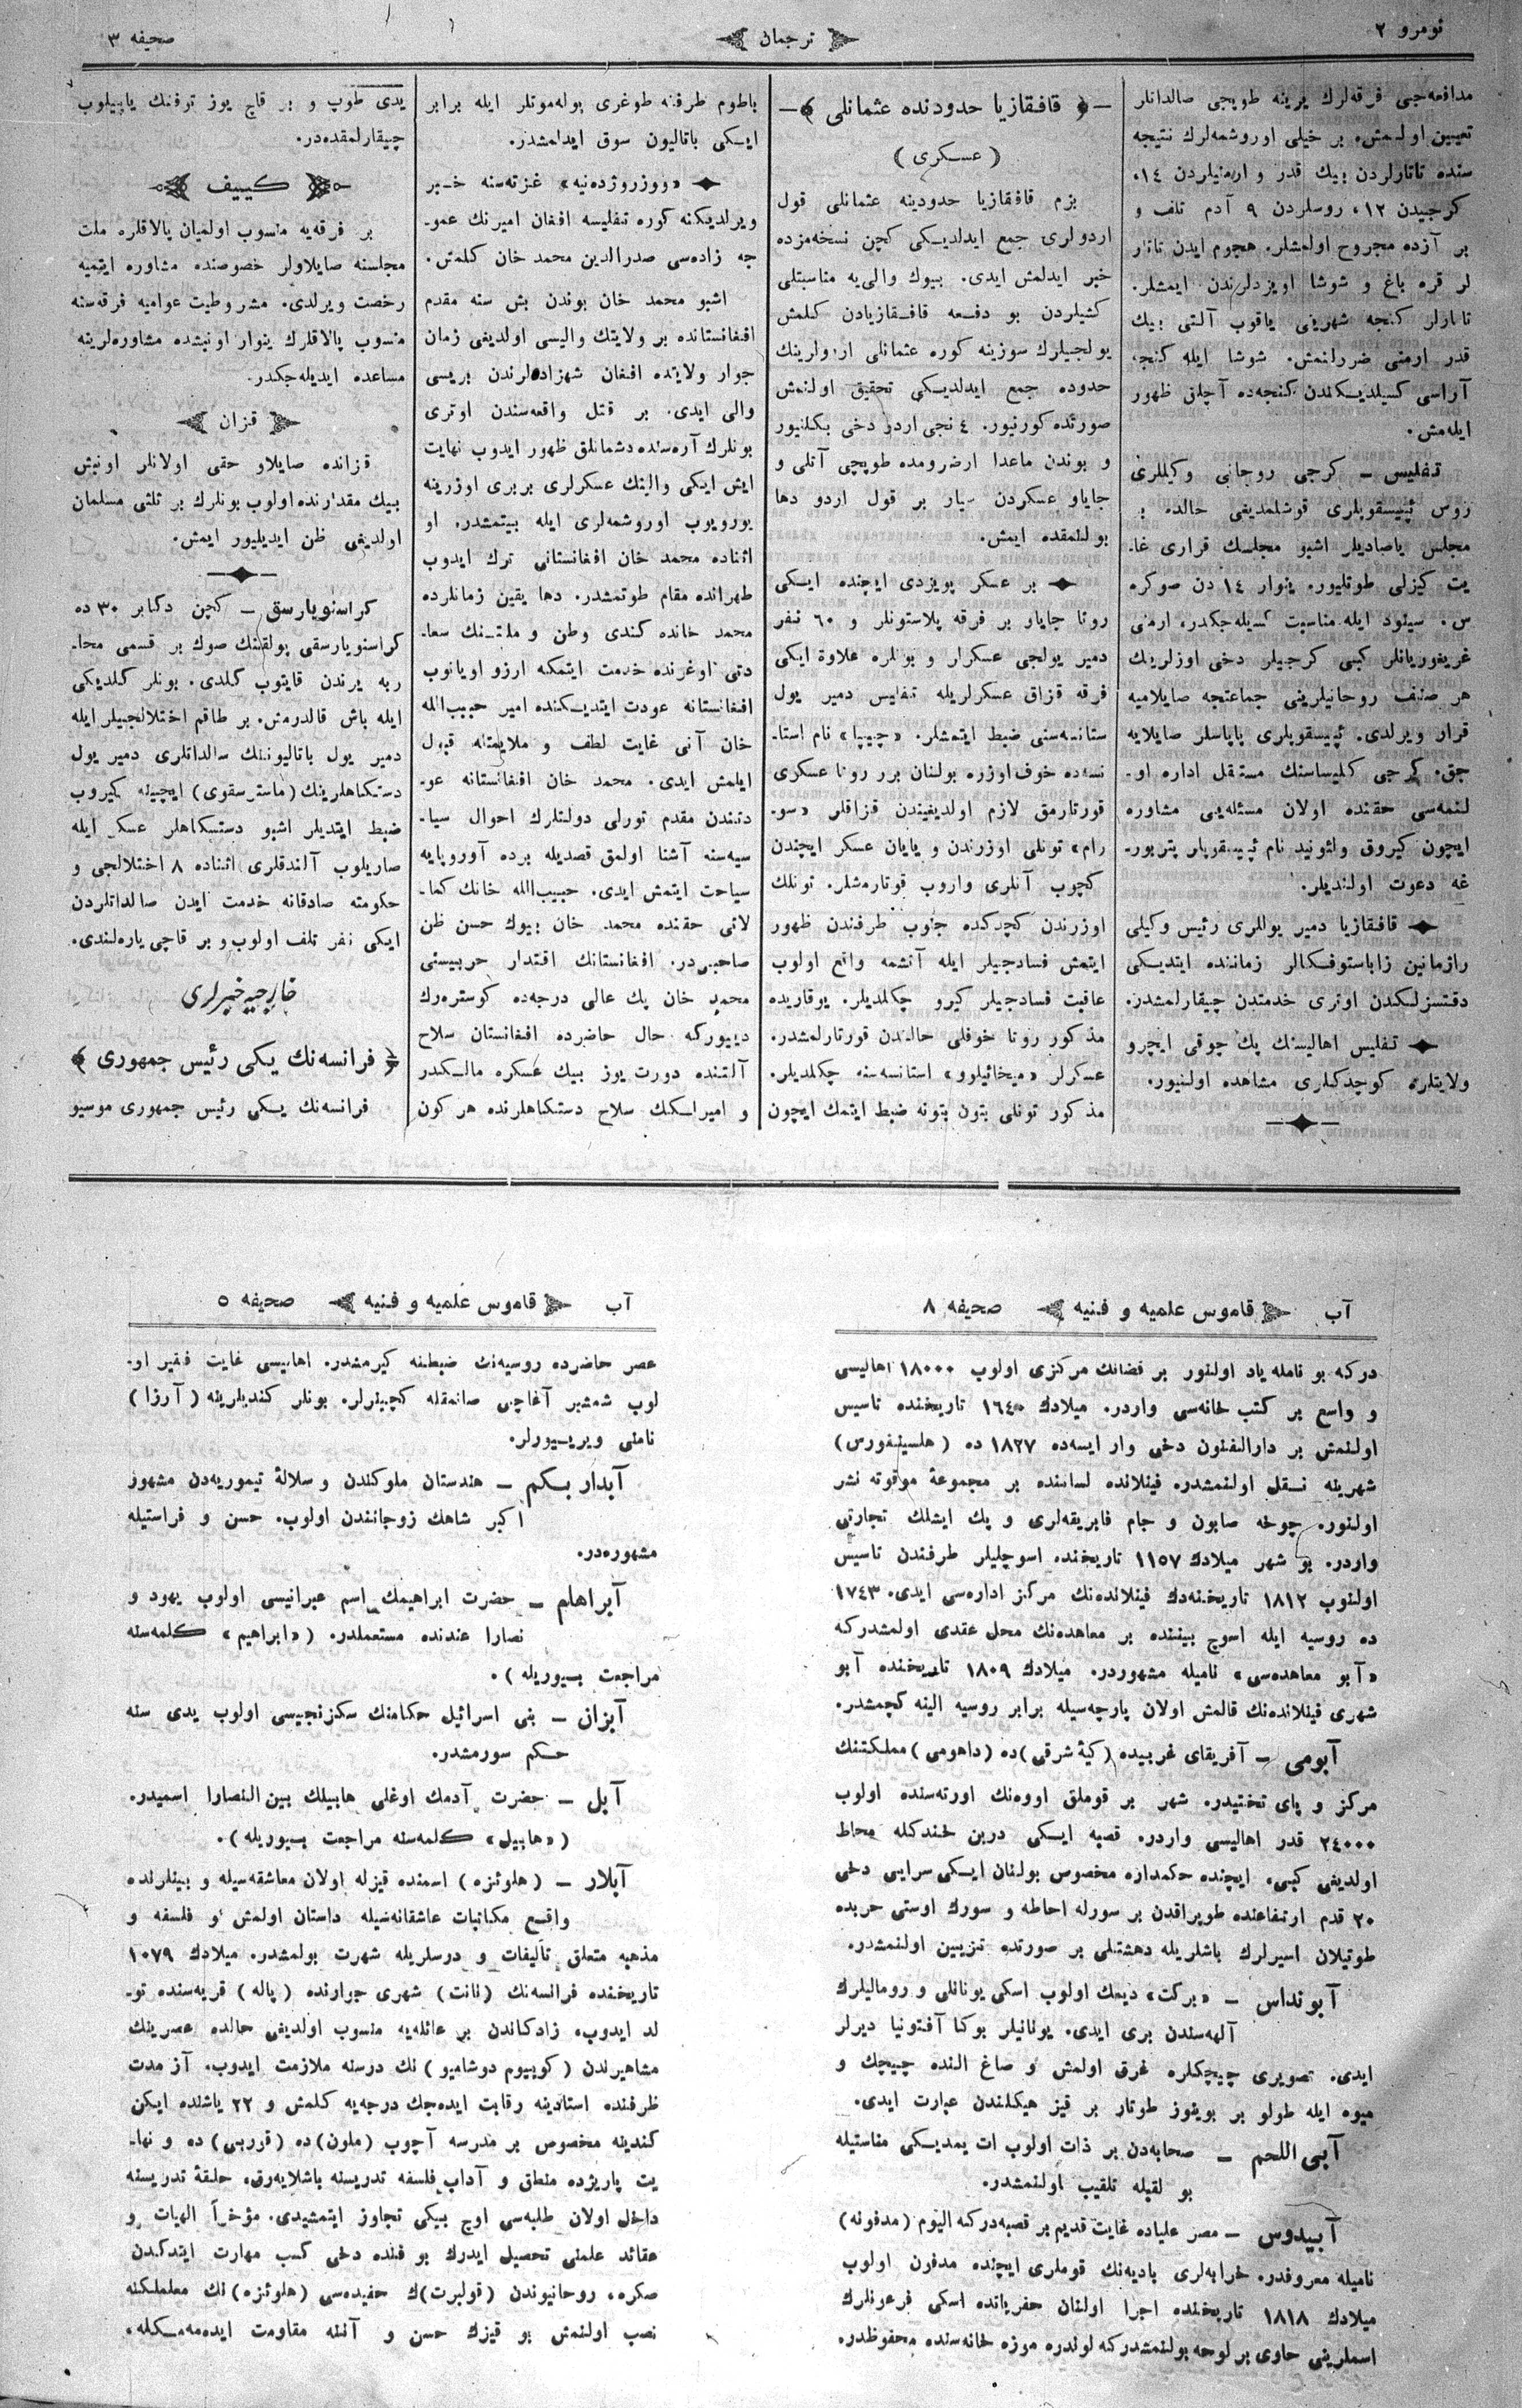 نومرو ٢
ترجمان
صحيفه ٣
مدافعه‌جی فرقه‌لرك يرينه طوپجی صالداتلر
تعيين اولنمش. بر خيلی اوروشمه‌لرك نتيجه
سنده تاتارلردن بيك قدر و ارمنيلردن ١٤،
كرجيدن ١٢، روسلردن ٩ آدم تلف و
بر آزده مجروح اولمشلر. هجوم ايدن تاتار
لر قره باغ و شوشا اويزدلرندن ايمشلر.
تاتارلر كنجه شهرينی ياقوب آلتی بيك
قدر ارمنی ضررلنمش. شوشا ايله كنجه
آراسی كسيلديكندن كنجه‌ده آچلق ظهور
ايله‌مش.
تفليس – كرجی روحانی وكيللری
روس ئپيسقوپلری قوشلمديغی حالده بر
مجلس ياصاديلر اشبو مجلسك قراری غا-
يت كيزلی طوتليور. ينوار ١٤ دن صوكره
س. سينود ايله مناسبت كسيله‌جكدر، ارمنی
غريغوريانلر كبی كرجيلر دخی اوزلرينك
هر صنف روحانيلرينی جماعتجه صايلاميه
قرار ويرلدی. ئپيسقوپلری پاپاسلر صايلايه
جق. كرجی كليساسنك مستقل اداره او-
لنمه‌سی حقنده اولان مسئله‌يی مشاوره
ايچون كيروق ولئونيد نام ئپيسقوپلر پتربور-
غه دعوت اولنديلر.
قافقازيا دمير يوللری رئيس وكيلی
رازمانين زاباستوفكالر زماننده ايتديكی
دقتسزلكدن اوتری خدمتدن چيقارلمشدر.
تفليس اهاليسنك پك چوقی ايچرو
ولايتلره كوچدكلری مشاهده اولنيور.
قافقازيا حدودنده عثمانلی
( عسكری )
بزم قافقازيا حدودينه عثمانلی قول
اردولری جمع ايدلديكی كچن نسخه‌مزده
خبر ايدلمش ايدی. بيوك والی‌يه مناسبتلی
كشيلردن بو دفعه قافقازيادن كلمش
يولجيلرك سوزينه كوره عثمانلی اردولرينك
حدوده جمع ايدلديكی تحقيق اولنمش
صورتده كورنيور. ٤ نجی اردو دخی بكلنيور
و بوندن ماعدا ارضرومده طوپچی آتلی و
جاياو عسكردن سيار بر قول اردو دها
بولنمقده ايمش.
بر عسكر پويزدی ايچنده ايكی
روتا جاياو بر فرقه پلاستونلر و ٦٠ نفر
دمير يولجی عسكرلر و بونلره علاوة ايكی
فرقه قزاق عسكرلريله تفليس دمير يول
ستانسه‌سنی ضبط ايتمشلر. «چيپا» نام استا-
نسه‌ده خوف اوزره بولنان برر روتا عسكری
قورتارمق لازم اولديغيندن قزاقلر «سو-
رام» تونلی اوزرندن و يايان عسكر ايچندن
كچوب آنلری واروب قوتارمشلر. تونلك
اوزرندن كچركده جنوب طرفندن ظهور
ايتمش فسادجيلر ايله آتشمه واقع اولوب
عاقبت فسادجيلر كيرو چكلمديلر. يوقاريده
مذكور روتا خوفلی حالدن قورتارلمشدر.
عسكرلر «ميخائيلوو» استانسه‌سنه چكلديلر.
مذكور تونلی بتون بتونه ضبط ايتمك ايچون
باطوم طرفنه طوغری پوله‌موتلر ايله برابر
ايكی باتاليون سوق ايدلمشدر.
«ووزروژده‌نيه» غزته‌سنه خبر
ويرلديكنه كوره تفليسه افغان اميرنك عمو-
جه زاده‌سی صدرالدين محمد خان كلمش.
اشبو محمد خان بوندن بش سنه مقدم
افغانستانده بر ولايتك واليسی اولديغی زمان
جوار ولايتده افغان شهزاده‌لرندن بريسی
والی ايدی. بر قتل واقعه‌سندن اوتری
بونلرك آره‌سنده دشمانلق ظهور ايدوب نهايت
ايش ايكی والينك عسكرلری بربری اوزرينه
يورويوب اوروشمه‌لری ايله بيتمشدر. او
اثناده محمد خان افغانستانی ترك ايدوب
طهرانده مقام طوتمشدر. دها يقين زمانلرده
محمد خانده كندی وطن و ملتنك سعا-
دتی اوغرنده خدمت ايتمكه ارزو اويانوب
افغانستانه عودت ايتديكنده امير حبيب‌الله
خان آنی غايت لطف و ملايمتله قبول
ايلمش ايدی. محمد خان افغانستانه عو-
دتندن مقدم تورلی دولتلرك احوال سيا-
سيه‌سنه آشنا اولمق قصديله برده آوروپايه
سياحت ايتمش ايدی. حبيب‌الله خانك كما-
لاتی حقنده محمد خان بيوك حسن ظن
صاحبيدر. افغانستانك اقتدار حربيسنی
محمد خان پك عالی درجه‌ده كوستره‌رك
دييوركه حال حاضرده افغانستان سلاح
آلتنده دورت يوز بيك عسكره مالكدر
و اميرلكك سلاح دستكاهلرنده هر كون
يدی طوپ و بر قاچ يوز توفنك ياپيلوب
چيقارلمقده‌در.
كييف
بر فرقه‌يه منسوب اولميان پالاقلره ملت
مجلسنه صايلاولر خصوصنده مشاوره ايتميه
رخصت ويرلدی. مشروطيت عواميه فرقه‌سنه
منسوب پالاقلرك ينوار اونبشده مشاوره‌لرينه
مساعده ايديله‌جكدر.
قزان
قزانده صايلاو حقی اولانلر اونبش
بيك مقدارنده اولوب بونلرك بر ثلثی مسلمان
اولديغی ظن ايديليور ايمش.
كراسنويارسق – كچن دكابر ٣٠ ده
كراسنويارسقی پولقنك صوك بر قسمی محا-
ربه يرندن قايتوب كلدی. بونلر كلديكی
ايله باش قالدرمش. بر طاقم اختلالجيلر ايله
دمير يول باتاليوننك سالداتلری دمير يول
دستكاهلرينك (ماسترسقوی) ايچينه كيروب
ضبط ايتديلر اشبو دستكاهلر عسكر ايله
صاريلوب آلندقلری اثناده ٨ اختلالجی و
حكومته صادقانه خدمت ايدن صالداتلردن
ايكی نفر تلف اولوب و بر قاچی ياره‌لندی.
خارجيه خبرلری
فرانسه‌نك يكی رئيس جمهوری
فرانسه‌نك يكی رئيس جمهوری موسيو
آب
قاموس علميه و فنيه
صحيفه ٨
دركه بو نامله ياد اولنور بر قضانك مركزی اولوب ١٨٠٠٠ اهاليسی
و واسع بر كتب خانه‌سی واردر. ميلادك ١٦٤٠ تاريخنده تاسيس
اولنمش بر دارالفنون دخی وار ايسه‌ده ١٨٢٧ ده (هلسينغفورس)
شهرينه نقل اولنمشدر. فينلانده لساننده بر مجموعۀ موقوته نشر
اولنور. چوخه صابون و جام فابريقه‌لری و پك ايشلك تجارتی
واردر. بو شهر ميلادك ١١٥٧ تاريخنده اسوجليلر طرفندن تاسيس
اولنوب ١٨١٢ تاريخنه‌دك فينلانده‌نك مركز اداره‌سی ايدی. ١٧٤٣
ده روسيه ايله اسوج بيننده بر معاهده‌نك محل عقدی اولمشدركه
«آبو معاهده‌سی» ناميله مشهوردر. ميلادك ١٨٠٩ تاريخنده آبو
شهری فينلانده‌نك قالمش اولان پارچه‌سيله برابر روسيه الينه كچمشدر.
آبومی – آفريقای غربيده (كينۀ شرقی) ده (داهومی) مملكتنك
مركز و پای تختيدر. شهر بر قوملق اوه‌نك اورته‌سنده اولوب
٢٤٠٠٠ قدر اهاليسی واردر. قصبه ايكی درين خندكله محاط
اولديغی كبی، ايچنده حكمداره مخصوص بولنان ايكی سرايی دخی
٢٠ قدم ارتفاعنده طوپراقدن بر سورله احاطه و سورك اوستی حربده
طوتيلان اسيرلرك باشلريله دهشتلی بر صورتده تزيين اولنمشدر.
آبونداس – «بركت» ديمك اولوب اسكی يونانلی و رومالیلرك
آلهه‌سندن بری ايدی. يونانيلر بوكا آفتونيا ديرلر
ايدی. تصويری چيچكلره غرق اولمش و صاغ النده چيچك و
ميوه ايله طولو بر بوينوز طوتار بر قيز هيكلندن عبارت ايدی.
آبی اللحم – صحابه‌دن بر ذات اولوب ات يمديكی مناسبتيله
بو لقبله تلقيب اولنمشدر.
آبيدوس – مصر علياده غايت قديم بر قصبه‌دركه اليوم (مدفونه)
ناميله معروفدر. خرابه‌لری باديه‌نك قوملری ايچنده مدفون اولوب
ميلادك ١٨١٨ تاريخنده اجرا اولنان حفرياتده اسكی فرعونلرك
اسملرينی حاوی بر لوحه بولنمشدركه لوندره موزه خانه‌سنده محفوظدر.
آب
قاموس علميه و فنيه
صحيفه ٥
عصر حاضرده روسيه‌نك ضبطنه كيرمشدر. اهاليسی غايت فقير او-
لوب شمشير آغاچی صاتمقله كچينرلر. بونلر كنديلرينه (آرزا)
نامنی ويريسيورلر.
آبدار بكم – هندستان ملوكندن و سلالۀ تيموريه‌دن مشهور
اكبر شاهك زوجاتندن اولوب. حسن و فراستيله
مشهوره‌در.
آبراهام – حضرت ابراهيمك اسم عبرانيسی اولوب يهود و
نصارا عندنده مستعملدر. («ابراهيم» كلمه‌سنه
مراجعت بيوريله).
آبزان – بنی اسرائيل حكامنك سكزنجيسی اولوب يدی سنه
حكم سورمشدر.
آبل – حضرت آدمك اوغلی هابيلك بين النصارا اسميدر.
(«هابيل» كلمه‌سنه مراجعت بيوريله).
آبلار – (هلوئزه) اسمنده قيزله اولان معاشقه‌سيله و بينلرنده
واقع مكاتبات عاشقانه‌سيله داستان اولمش و فلسفه و
مذهبه متعلق تأليفات و دوسلريله شهرت بولمشدر. ميلادك ١٠٧٩
تاريخنده فرانسه‌نك (نانت) شهری جوارنده (پاله) قريه‌سنده تو-
لد ايدوب، زادكاندن بر عائله‌يه منسوب اولديغی حالده عصرينك
مشاهيرندن (كوييوم دوشامپو) نك درسنه ملازمت ايدوب. آز مدت
ظرفنده استادينه رقابت ايده‌جك درجه‌يه كلمش و ٢٢ ياشنده ايكن
كندينه مخصوص بر مدرسه آچوب (ملون) ده (قوربی) ده و نها-
يت پاريزده منطق و آداب فلسفه تدريسنه باشلايه‌رق، حلقۀ تدريسنه
داخل اولان طلبه‌سی اوچ بيكی تجاوز ايتمشيدی. مؤخراً الهيات و
عقائد علمنی تحصيل ايدرك بو فنده دخی كسب مهارت ايتدكدن
صكره. روحانيوندن (فولبرت)ك حفيده‌سی (هلوئزه)نك معلملكنه
نصب اولنمش بو قيزك حسن و آننه مقاومت ايده‌مه‌مكله،